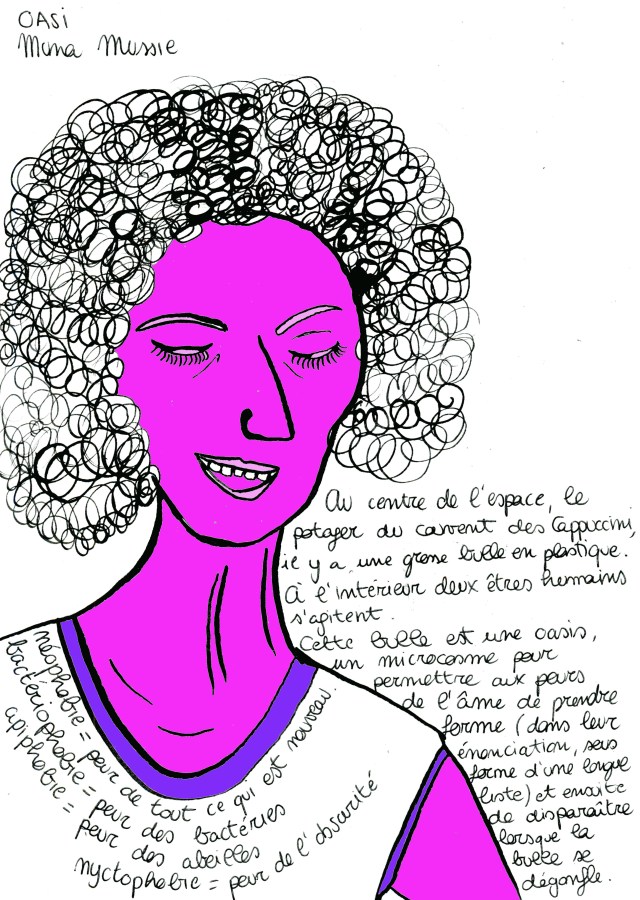 OASi
Muna Mussie
Au centre de l'espace, le
potager du couvent des Cappuccini,
il y a une grosse bulle en plastique.
À l'intérieur deux êtres humains
s'agitent.
Cette bulle est une oasis,
un microcosme pour
permettre aux peurs
de l'âme de prendre
forme (dans leur
énonciation, sous
forme d'une longue
liste) et ensuite
de disparaître
lorsque la
bulle se
dégonfle.
néophobie = peur de tout ce qui est nouveau.
bactériophobie = peur des bactéries
apiphobie = peur des abeilles
nyctophobie = peur de l'obscurité